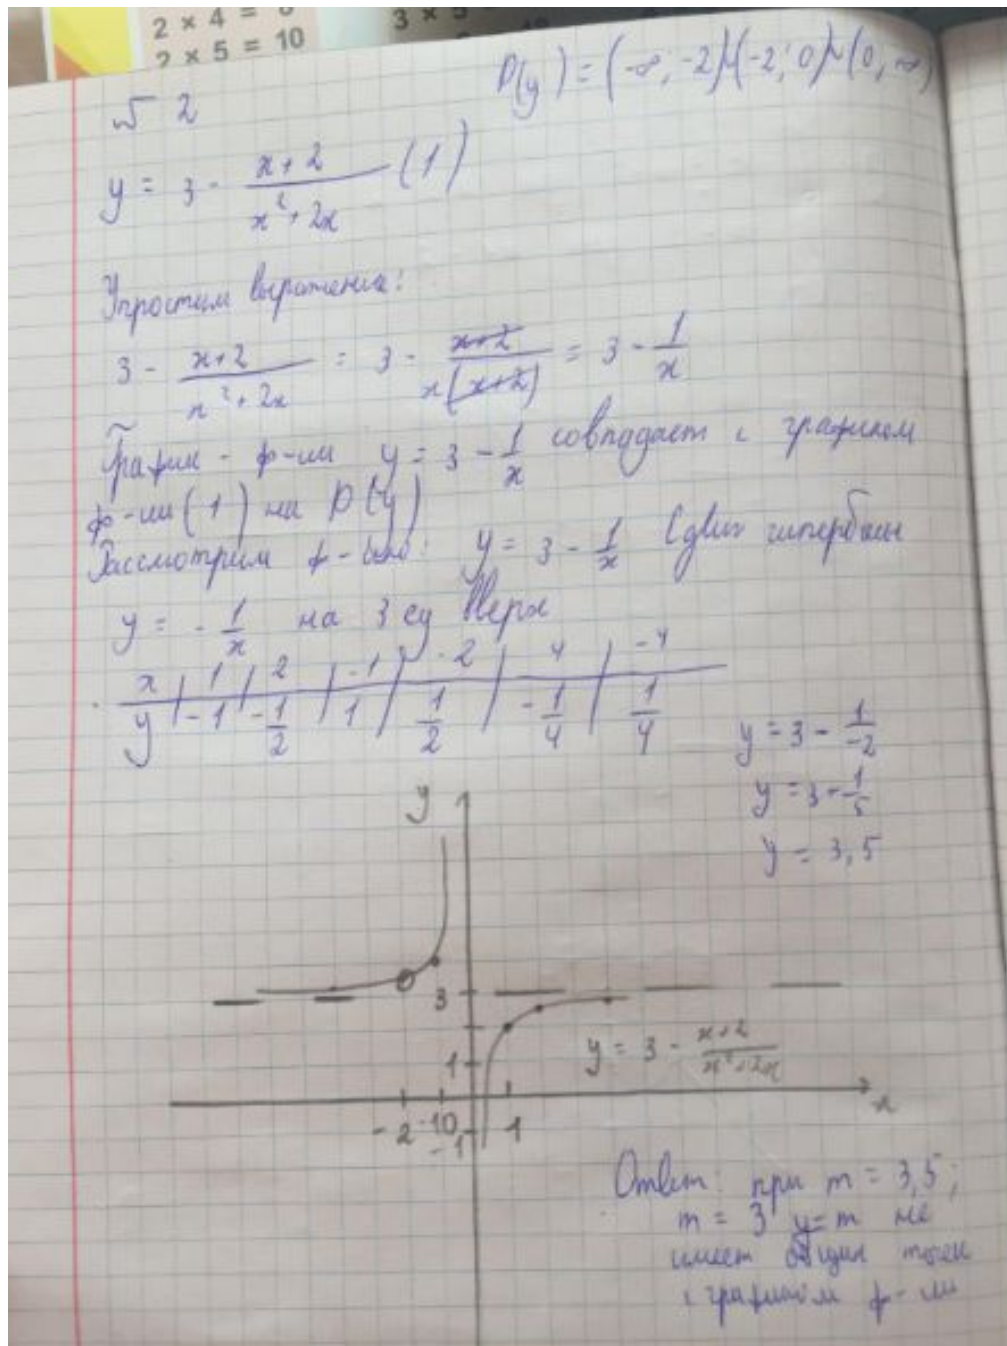 2 × 4 = 8
2 × 5 = 10
3 × 5 =
D(y) = (-∞; -2)∪(-2; 0)∪(0; ∞)
№ 2
y = 3 - (x+2)/(x²+2x) (1)
Упростим выражение:
3 - (x+2)/(x²+2x) = 3 - (x+2)/(x(x+2)) = 3 - 1/x
График - ф-ии y = 3 - 1/x совпадает с графиком
ф-ии (1) на D(y)
Рассмотрим ф-цию: y = 3 - 1/x Сдвиг гиперболы
y = - 1/x на 3 ед вверх
x | 1 | 2 | -1 | -2 | 4 | -4
y | -1 | -1/2 | 1 | 1/2 | -1/4 | 1/4
y = 3 - 1/-2
y = 3 - -1/5
y = 3,5
y
3
y = 3 - (x+2)/(x²+2x)
1
x
-2 -1 0 1
-1
Ответ: при m = 3,5;
m = 3 y=m не
имеет общих точек
с графиком ф-ии